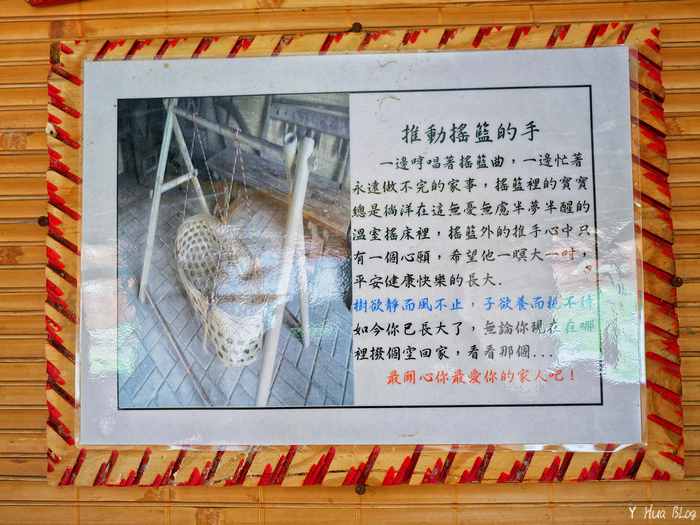 推動搖籃的手
一邊哼唱著搖籃曲，一邊忙著
永遠做不完的家事，搖籃裡的寶寶
總是徜洋在這無憂無慮半夢半醒的
溫室搖床裡，搖籃外的推手心中只
有一個心願，希望他一瞑大一吋，
平安健康快樂的長大.
樹欲靜而風不止，子欲養而親不待
如今你已長大了，無論你現在在哪
裡撥個空回家，看看那個...
最關心你最愛你的家人吧！
Y Hua BLog